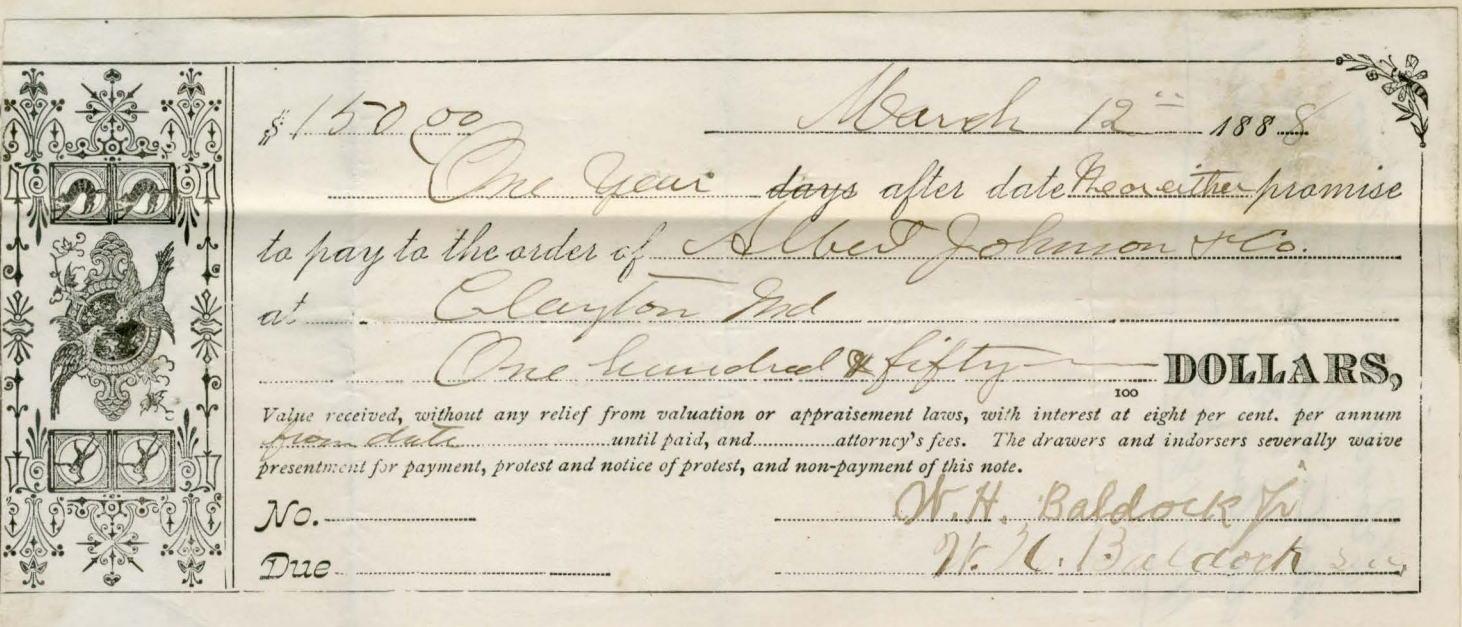 $150.00 March 12" 1888
One year days after date We or either promise
to pay to the order of Albert Johnson & Co.
at Clayton Ind
One hundred & fifty DOLLARS,
100
Value received, without any relief from valuation or appraisement laws, with interest at eight per cent. per annum
from date until paid, and attorney's fees. The drawers and indorsers severally waive
presentment for payment, protest and notice of protest, and non-payment of this note.
No. W. H. Baldock Jr
Due W. H. Baldock Sen,